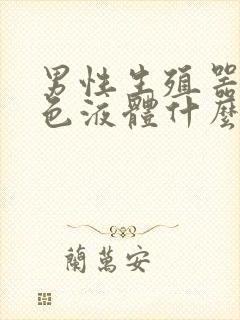 男性生殖器
色液體什麼
蘭萬安